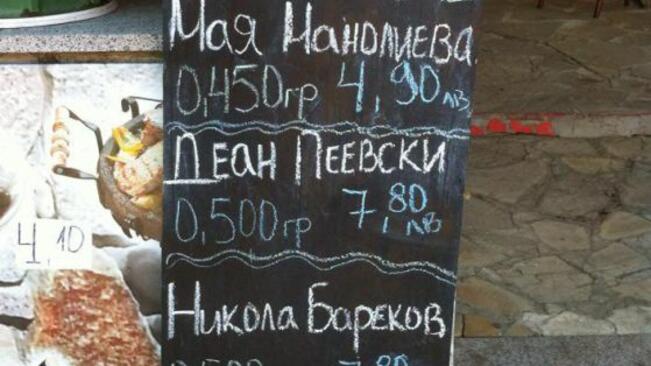 Мая Манолиева
0,450гр 4,90лв
Деан Пеевски
0,500гр 7,80лв
4,10
Никола Бареков
0,500 7,80